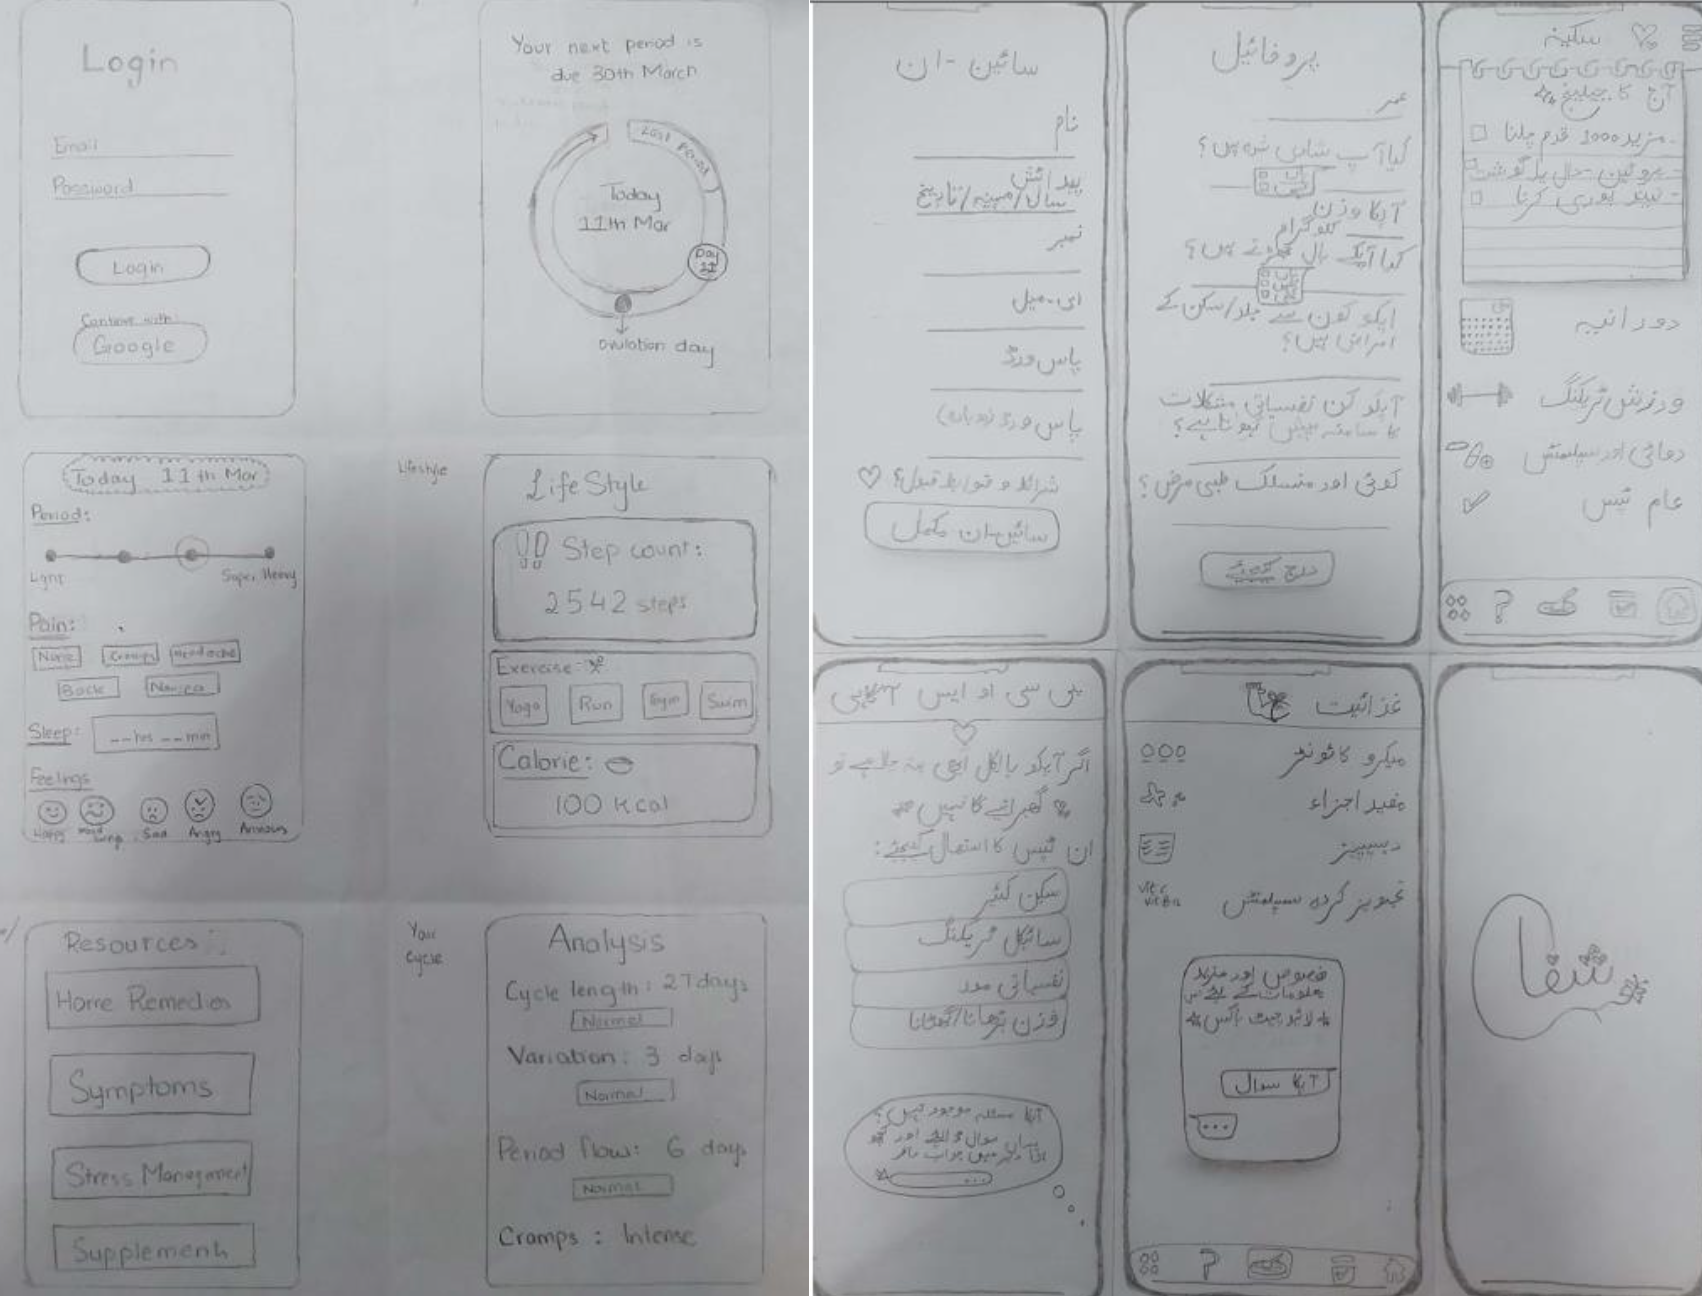 Login
Email
Password
Login
Continue with:
Google
Your next period is
due 30th March
Last period
Today
11th Mar
Day
11
ovulation day
Today 11th Mar
Period:
Light
Super Heavy
Pain:
None
Cramps
Headache
Back
Nausea
Sleep:
--hrs --min
Feelings
Happy
Mood
Swings
Sad
Angry
Anxious
Lifestyle
LifeStyle
Step count:
2542 steps
Exercise-
Yoga
Run
Gym
Swim
Calorie:
100 Kcal
Resources:
Home Remedies
Symptoms
Stress Management
Supplements
Your
cycle
Analysis
Cycle length: 27 days
Normal
Variation: 3 days
Normal
Period flow: 6 days
Normal
Cramps : Intense
سائین-ان
نام
پیدائش
سال/مہینہ/تاریخ
نمبر
ای-میل
پاس ورڈ
پاس ورڈ (دوبارہ)
شرائط و ضوابط قبول؟
سائین-ان مکمل
پروفائیل
عمر
کیا آپ شادی شدہ ہیں؟
آپکا وزن
کلوگرام
کیا آپکے بال جھڑتے ہیں؟
آپکو کون سے جلد/سکن کے
امراض ہیں؟
آپکو کن نفسیاتی مشکلات
کا سامنہ پیش ہوتا ہے؟
کوئی اور منسلک طبی مرض؟
درج کیجئے
سکینہ
آج کا چیلینج
مزید 1000 قدم چلنا
- پروٹین-دال یا گوشت
- نیند پوری کرنا
دورانیہ
ورزش ٹریکنگ
دوائی اور سپلیمنٹس
عام ٹپس
پی سی او ایس آگاہی
اگر آپکو بالکل ابھی پتہ چلا ہے تو
گھبرانے کا نہیں
ان ٹپس کا استعمال کیجئے:
سکن کیئر
سائیکل ٹریکنگ
نفسیاتی مدد
وزن بڑھانا/گھٹانا
آپکا مسئلہ موجود نہیں؟
یہاں سوال اور کچھ
دیر میں جواب
...
غذائیت
میکرو کاؤنٹر
مفید اجزاء
ریسیپیز
تجویز کردہ سپلیمنٹس
vit c
مخصوص اور مزید
معلومات کے لئے
لائیو چیٹ باکس
آپکا سوال
...
شفا